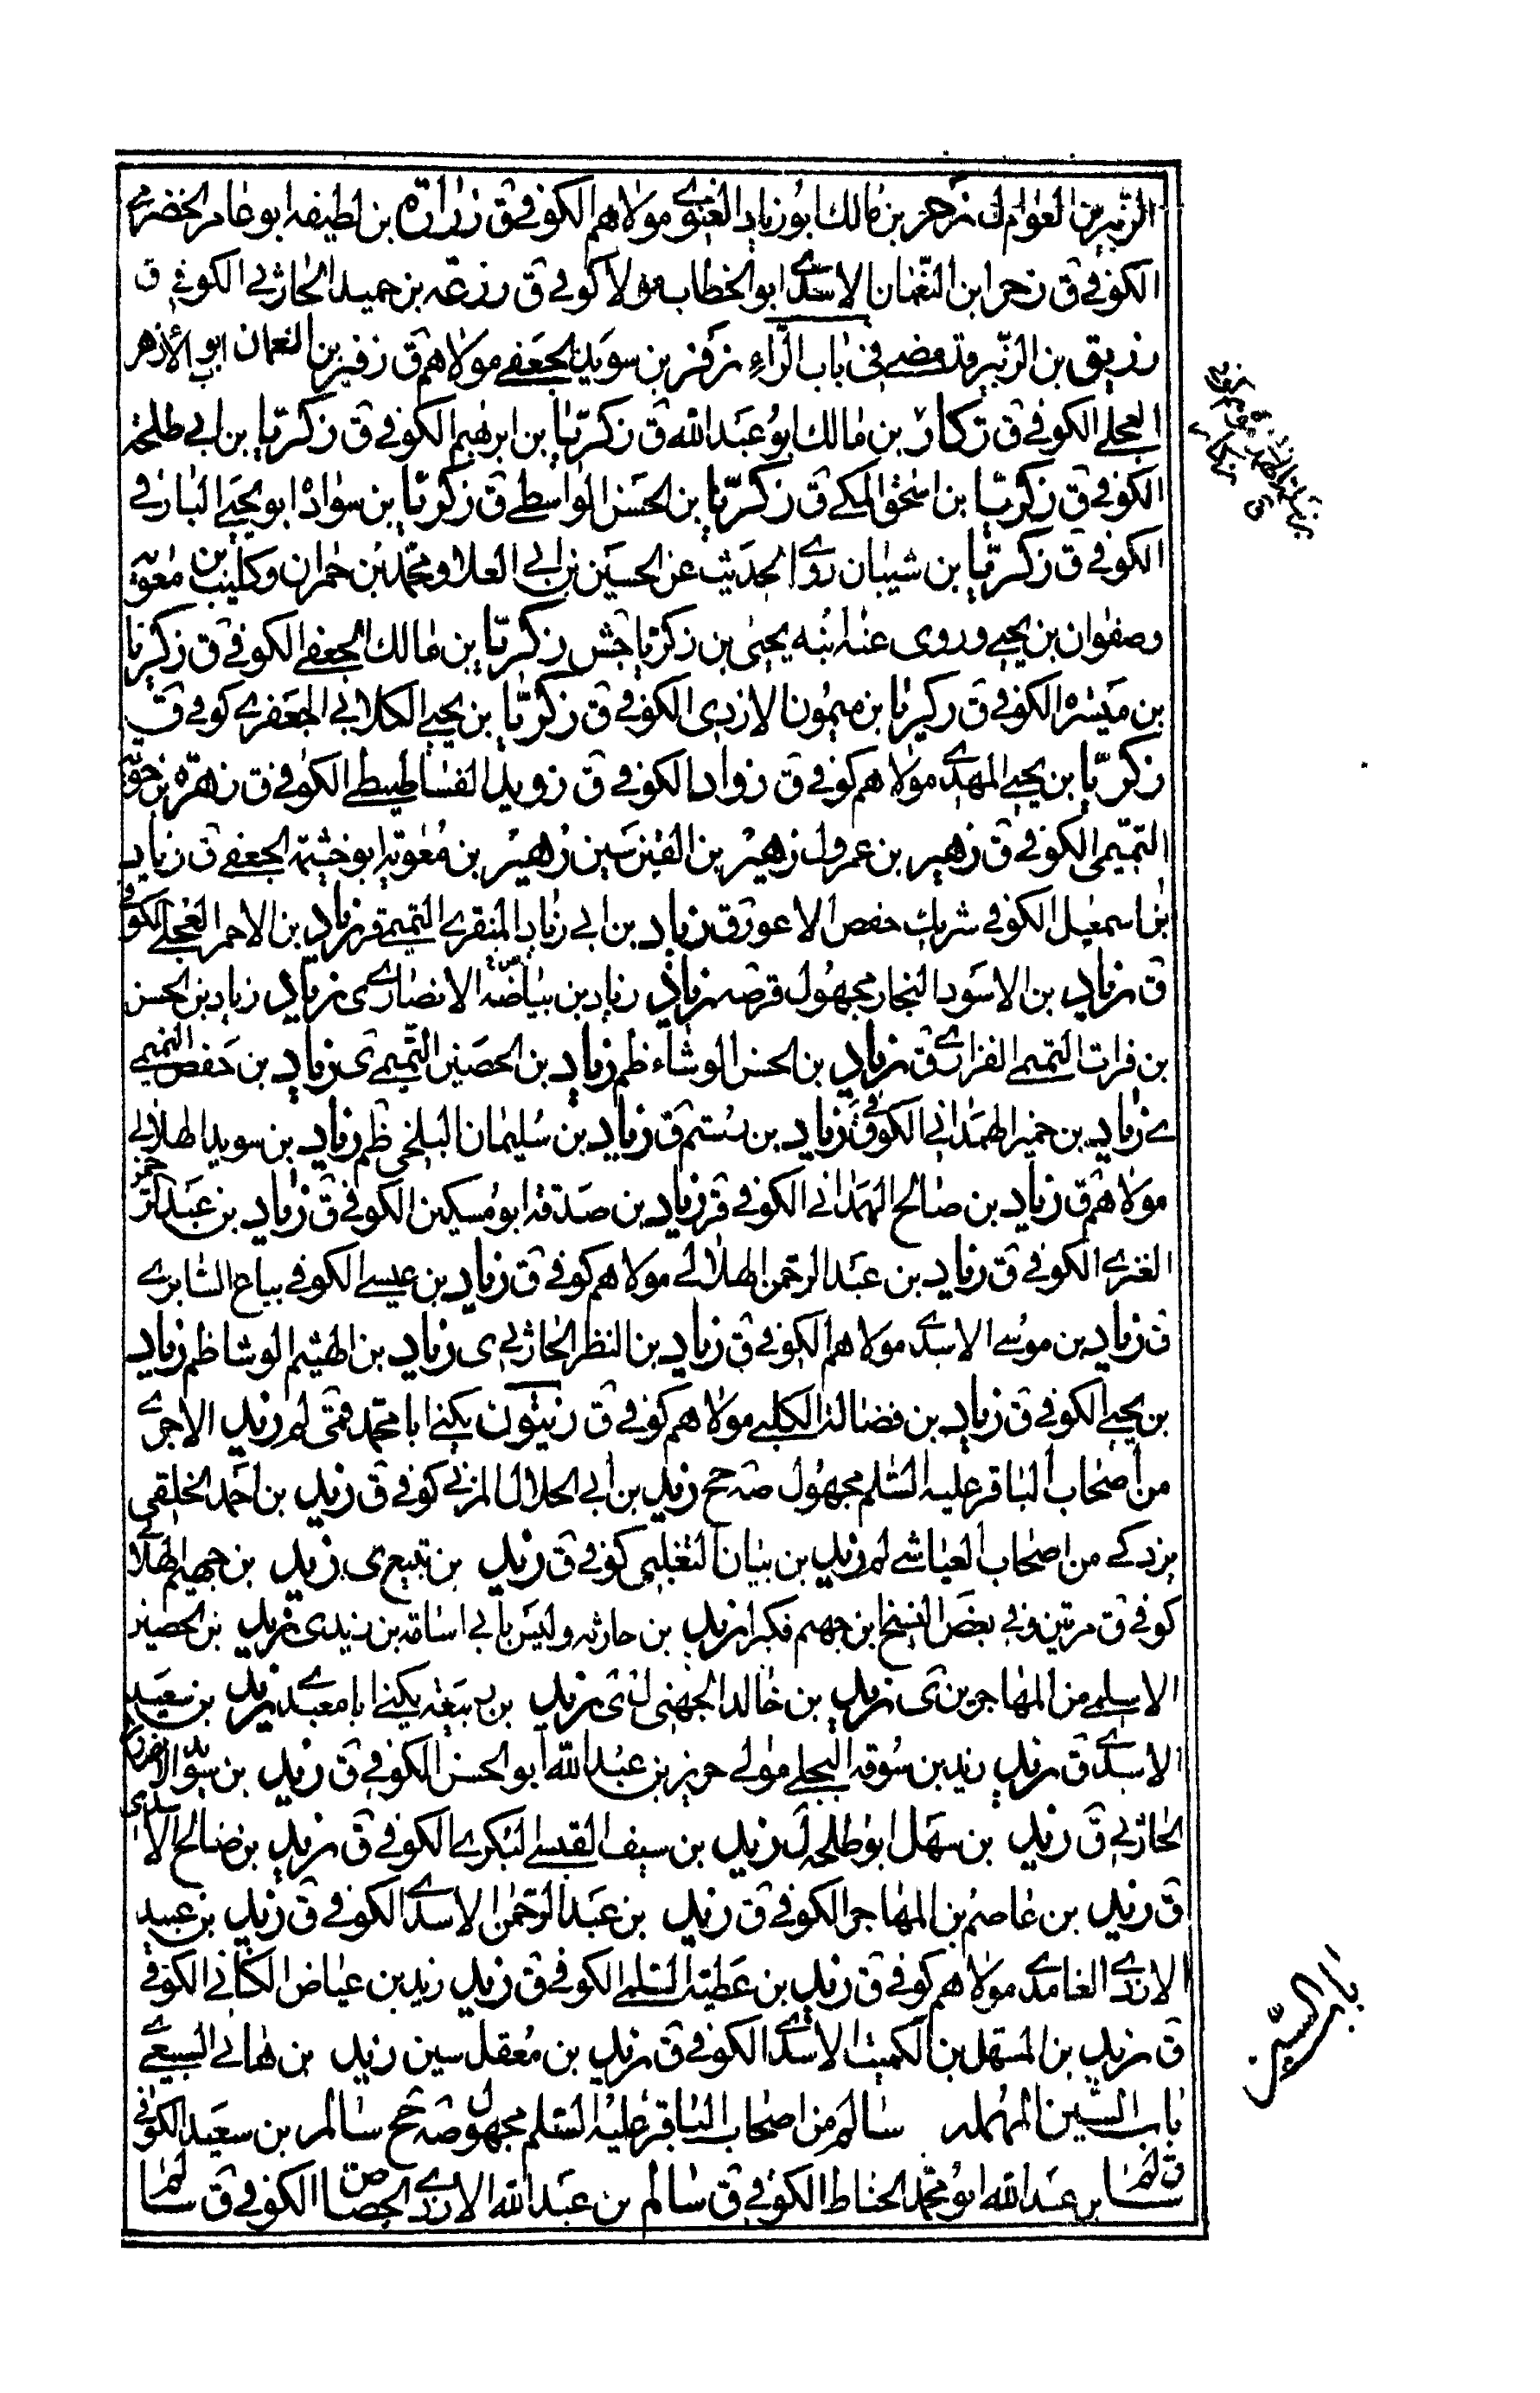 الزبير بن العوام ل زحر بن مالك ابو زياد الغنوي مولاهم الكوفي ق زرارة بن لطيفه ابو عامر الحضرمي
الكوفي ق زحر ابن النعمان الاسدي ابو الخطاب مولا كوفي ق زرعه بن حميد الحارثي الكوفي ق
زريق بن الزبير وقد مضى في باب الراء زفر بن سويد الجعفي مولاهم ق زفير بن النعمان ابو الازهر
العجلي الكوفي ق زكار بن مالك ابو عبد الله ق زكريا بن ابرهيم الكوفي ق زكريا بن ابي طلحة
الكوفي ق زكريا بن اسحق المكي ق زكريا بن الحسن الواسطي ق زكريا بن سواده ابو يحيى البارقي
الكوفي ق زكريا بن شيبان روى الحديث عن الحسين بن ابي العلاو محمد بن حمران وكليب بن معوية
وصفوان بن يحيى وروى عنه ابنه يحيى بن زكريا جش زكريا بن مالك الجعفي الكوفي ق زكريا
بن ميسره الكوفي ق زكريا بن ميمون الازدي الكوفي ق زكريا بن يحيى الكلابي الجعفري كوفي ق
زكريا بن يحيى المهدي مولاهم كوفي ق زواد الكوفي ق زويد الفساطيطي الكوفي ق زهرة بن حوية
التميمي الكوفي ق زهير بن عمرو ل زهير بن القين سين زهير بن معوية ابو خثيمة الجعفي ق زياد
بن اسمعيل الكوفي شريك حفص الاعور ق زياد بن ابي زياد المنقري التميمي قر زياد بن الاحمر العجلي الكوفي
ق زياد بن الاسود النجار مجهول قر صه زياد زياد بن بياضه الانصاري ى زياد زياد بن الحسن
بن فرات التميمي الفزاري ق زياد بن الحسن الوشاء ظم زياد بن الحصين التميمي ى زياد بن حفص التميمي
ي زياد بن خمير الهمداني الكوفي ق زياد بن رستم ق زياد بن سليمان البلخي ظم زياد بن سويد الهلالي
مولاهم ق زياد بن صالح الهمداني الكوفي قر زياد بن صدقه ابو مسكين الكوفي ق زياد بن عبد الرحمن
الغنري الكوفي ق زياد بن عبد الرحمن الهلالي مولاهم كوفي ق زياد بن عيسى الكوفي بياع السابري
ق زياد بن موسى الاسدي مولاهم الكوفي ق زياد بن النظر الحارثي ى زياد بن الهيثم الوشا ظم زياد
بن يحيى الكوفي ق زياد بن فضالة الكلبي مولاهم كوفي ق زيتون يكنى ابا محمد قمي لم زيد الاجري
من اصحاب الباقر عليه السلم مجهول صه جح زيد بن ابي الحلال المزني كوفي ق زيد بن احمد الخلقي
يزدكي من اصحاب العياشي لم زيد بن بيان التغلبي كوفي ق زيد بن تبيع ى زيد بن جهيم الهلالي
كوفي ق مرتين وفي بعض النسخ ابن جهم مكبرا زيد بن حارثه وليس بابي اسامه بن زيد ى زيد بن الحصين
الاسلمي من المهاجرين ى زيد بن خالد الجهني ل ى زيد بن ربيعه يكنى ابا معبد ى زيد بن سعيد
الاسدي ق زيد زيد بن سوقه البجلي مولى حريز بن عبد الله ابو الحسن الكوفي ق زيد بن سويد الانصاري
الحارثي ق زيد بن سهل ابو طلحه ل زيد بن سيف القيسي البكري الكوفي ق زيد بن صالح الاسدي
ق زيد بن عاصم بن المهاجر الكوفي ق زيد بن عبد الرحمن الاسدي الكوفي ق زيد بن عبيد
الازدي الغامدي مولاهم كوفي ق زيد بن عطية السلمي الكوفي ق زيد زيد بن عياض الكناني الكوفي
ق زيد بن المستهل بن الكميت الاسدي الكوفي ق زيد بن معقل سين زيد بن هاني السبيعي
باب السين المهمله سالم من اصحاب الباقر عليه السلم مجهول صه جح سالم بن سعيد الكوفي
ق سالم بن عبد الله ابو محمد الحناط الكوفي ق سالم بن عبد الله الازدي الجصاص الكوفي ق سالم
باب السين